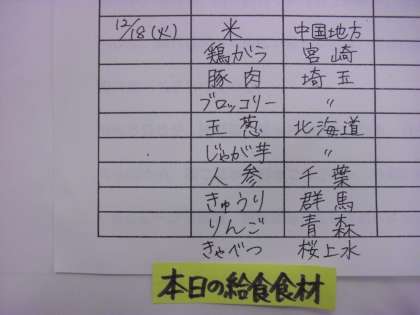 12/18(火) 米 中国地方
鶏がら 宮崎
豚肉 埼玉
ブロッコリー 〃
玉葱 北海道
じゃが芋 〃
人参 千葉
きゅうり 群馬
りんご 青森
きゃべつ 桜上水
本日の給食食材